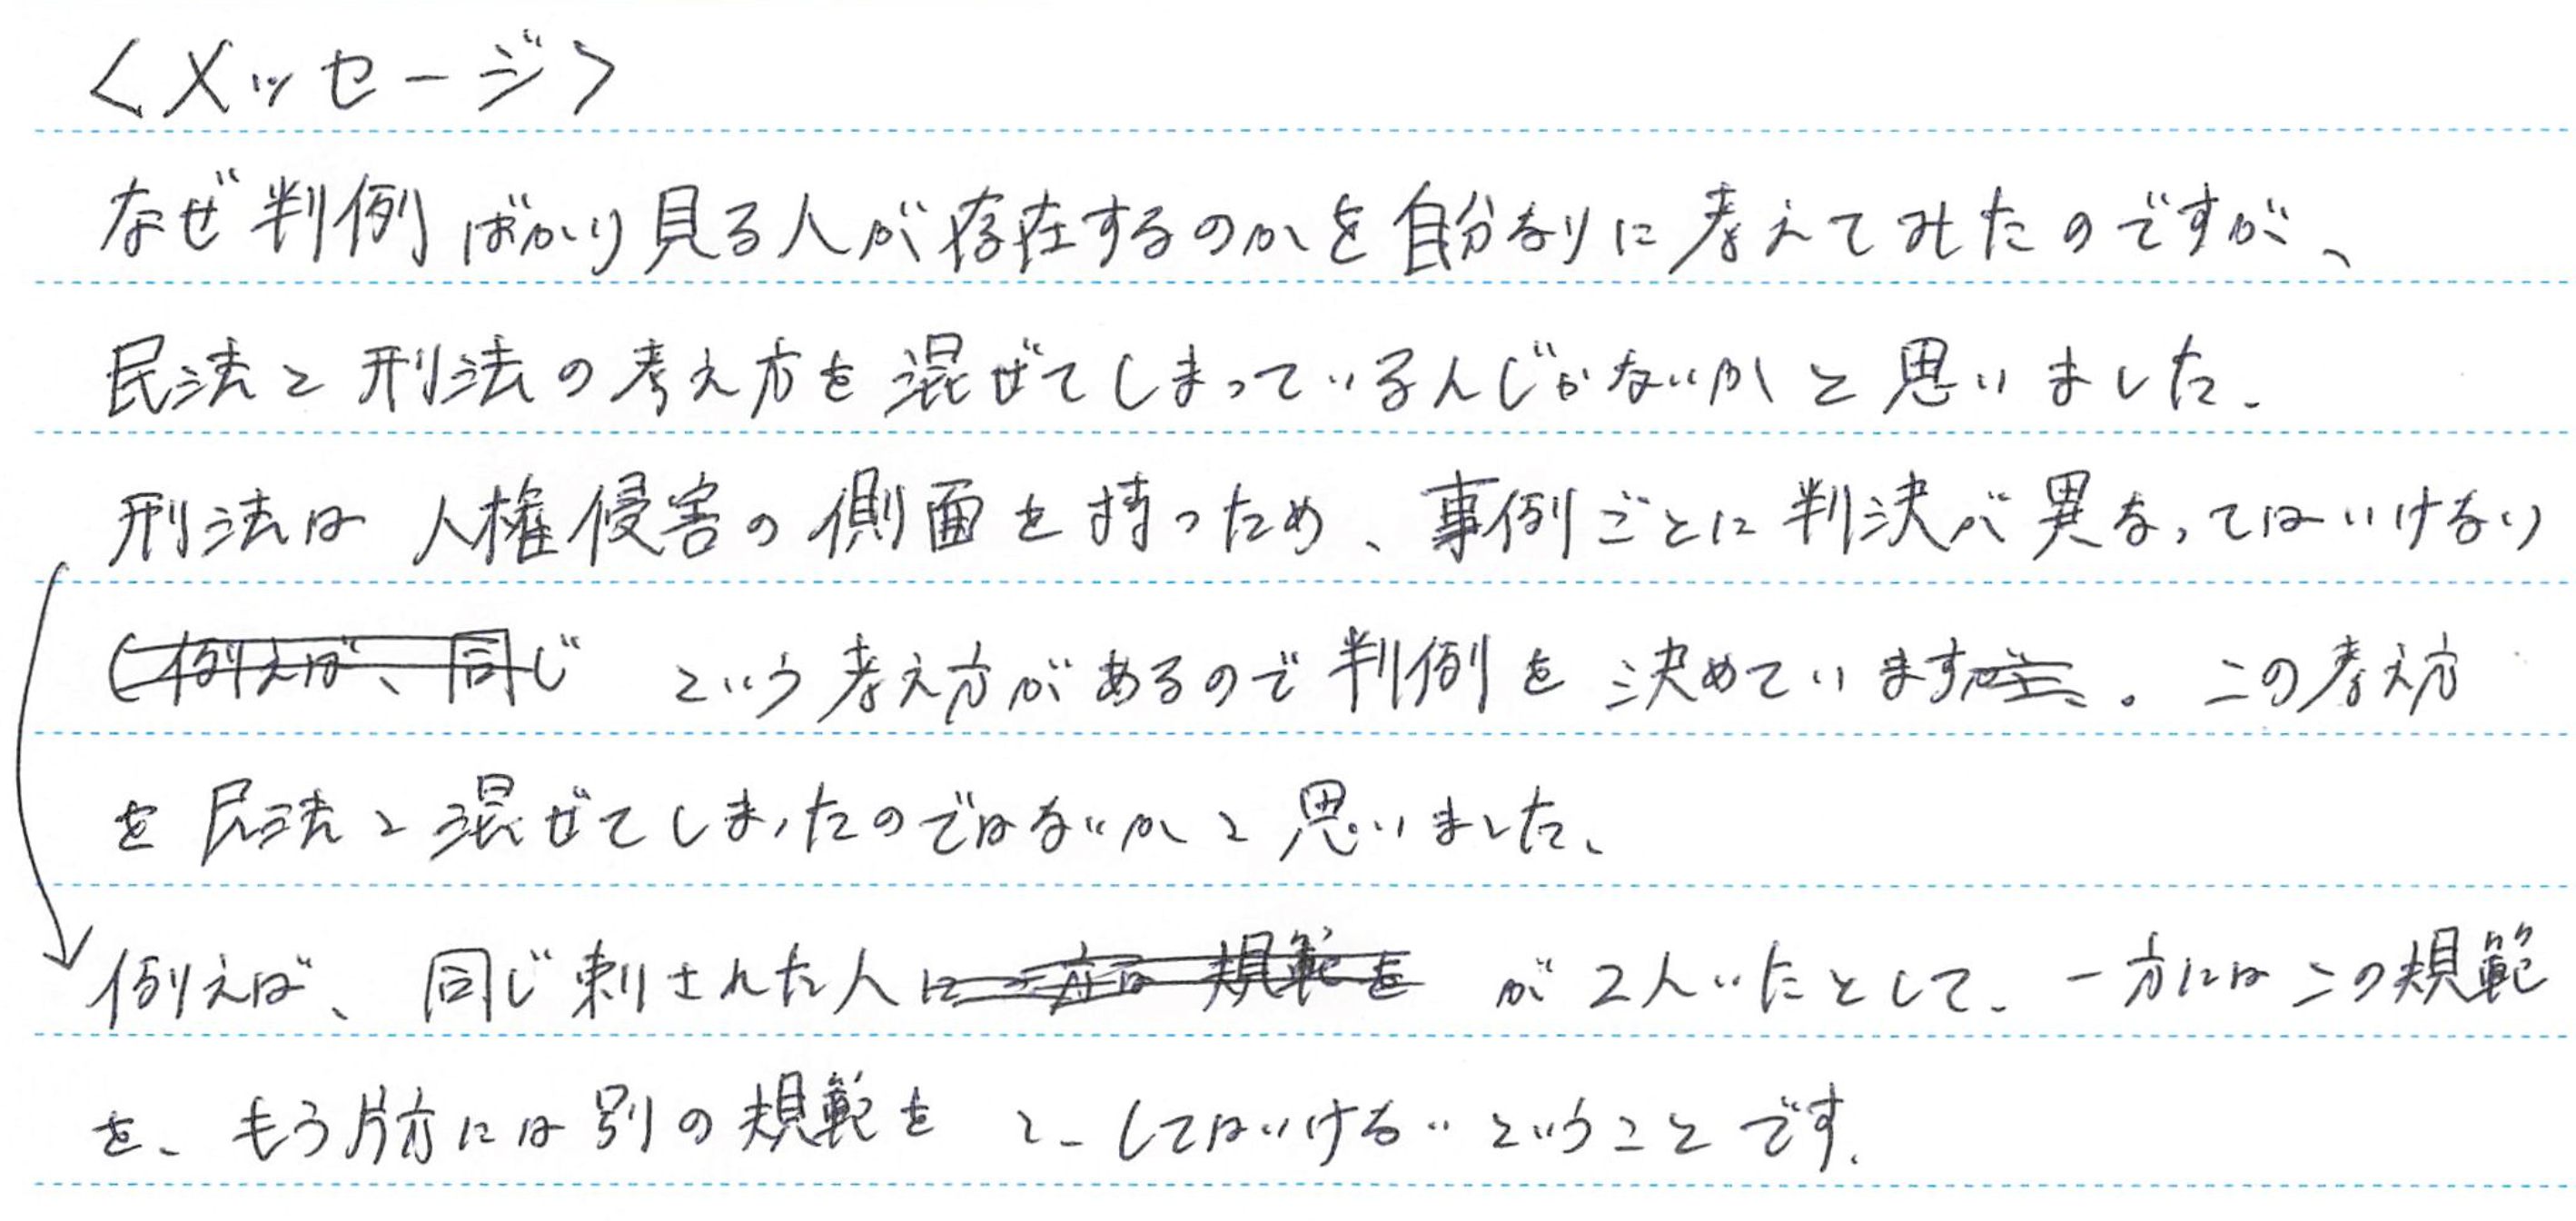 <メッセージ>
なぜ判例ばかり見る人が存在するのかを自分なりに考えてみたのですが、
民法と刑法の考え方を混ぜてしまっているんじゃないかと思いました。
刑法は人権侵害の側面を持つため、事例ごとに判決が異なってはいけない
(例えば、同じ という考え方があるので判例を決めています。この考え方
を民法と混ぜてしまったのではないかと思いました。
例えば、同じ刺された人に一方は規範を が2人いたとして、一方にはこの規範
を、もう片方には別の規範を としてはいけないということです。